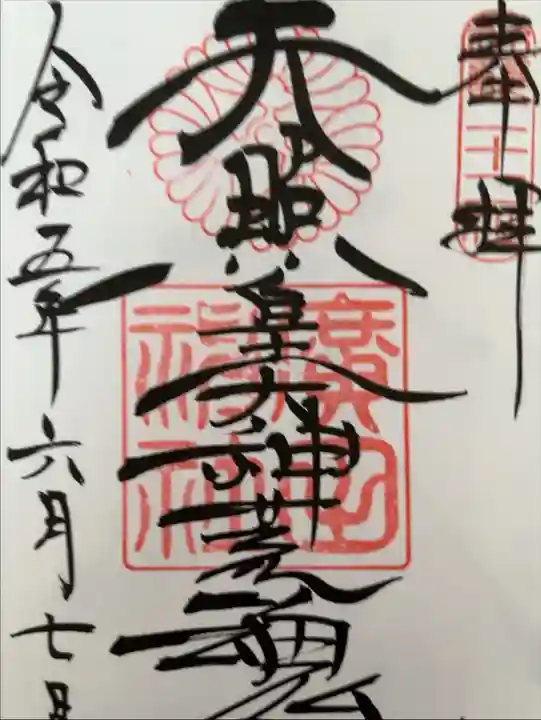 奉拝
天照皇大神荒魂
令和五年六月七日
廣田神社